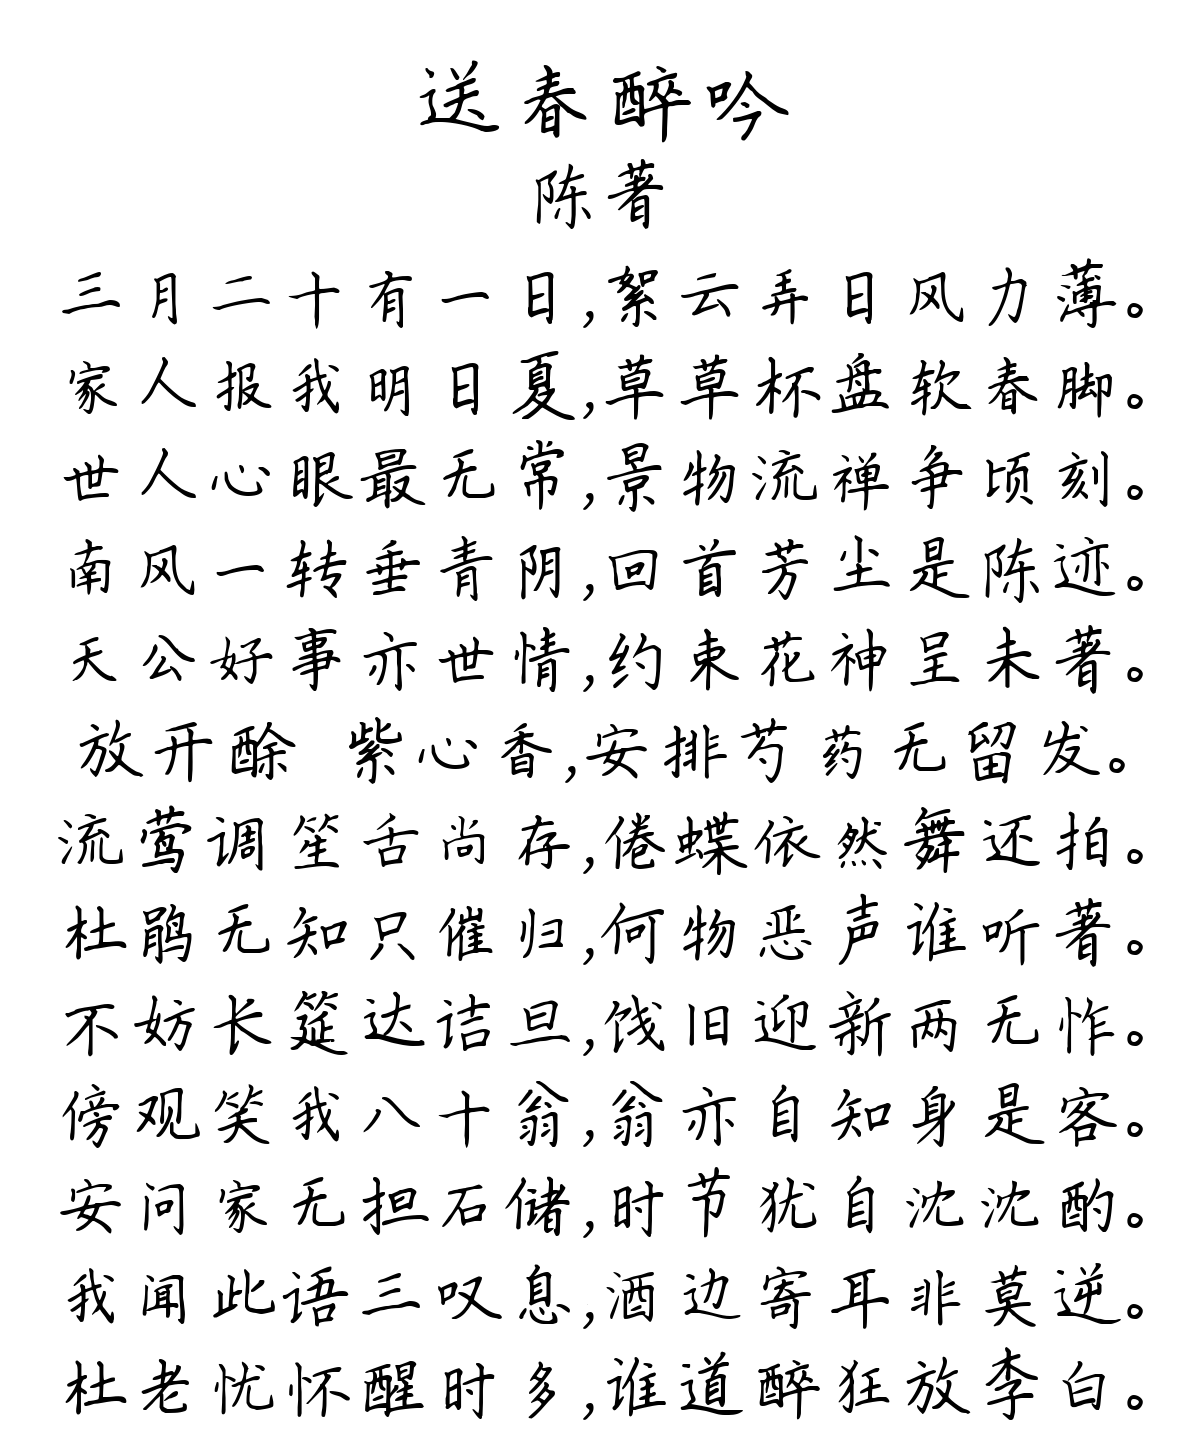 送春醉吟
陈著
三月二十有一日,絮云弄日风力薄。
家人报我明日夏,草草杯盘软春脚。
世人心眼最无常,景物流禅争顷刻。
南风一转垂青阴,回首芳尘是陈迹。
天公好事亦世情,约束花神呈未著。
放开酴 紫心香,安排芍药无留发。
流莺调笙舌尚存,倦蝶依然舞还拍。
杜鹃无知只催归,何物恶声谁听著。
不妨长筵达诘旦,饯旧迎新两无怍。
傍观笑我八十翁,翁亦自知身是客。
安问家无担石储,时节犹自沈沈酌。
我闻此语三叹息,酒边寄耳非莫逆。
杜老忧怀醒时多,谁道醉狂放李白。